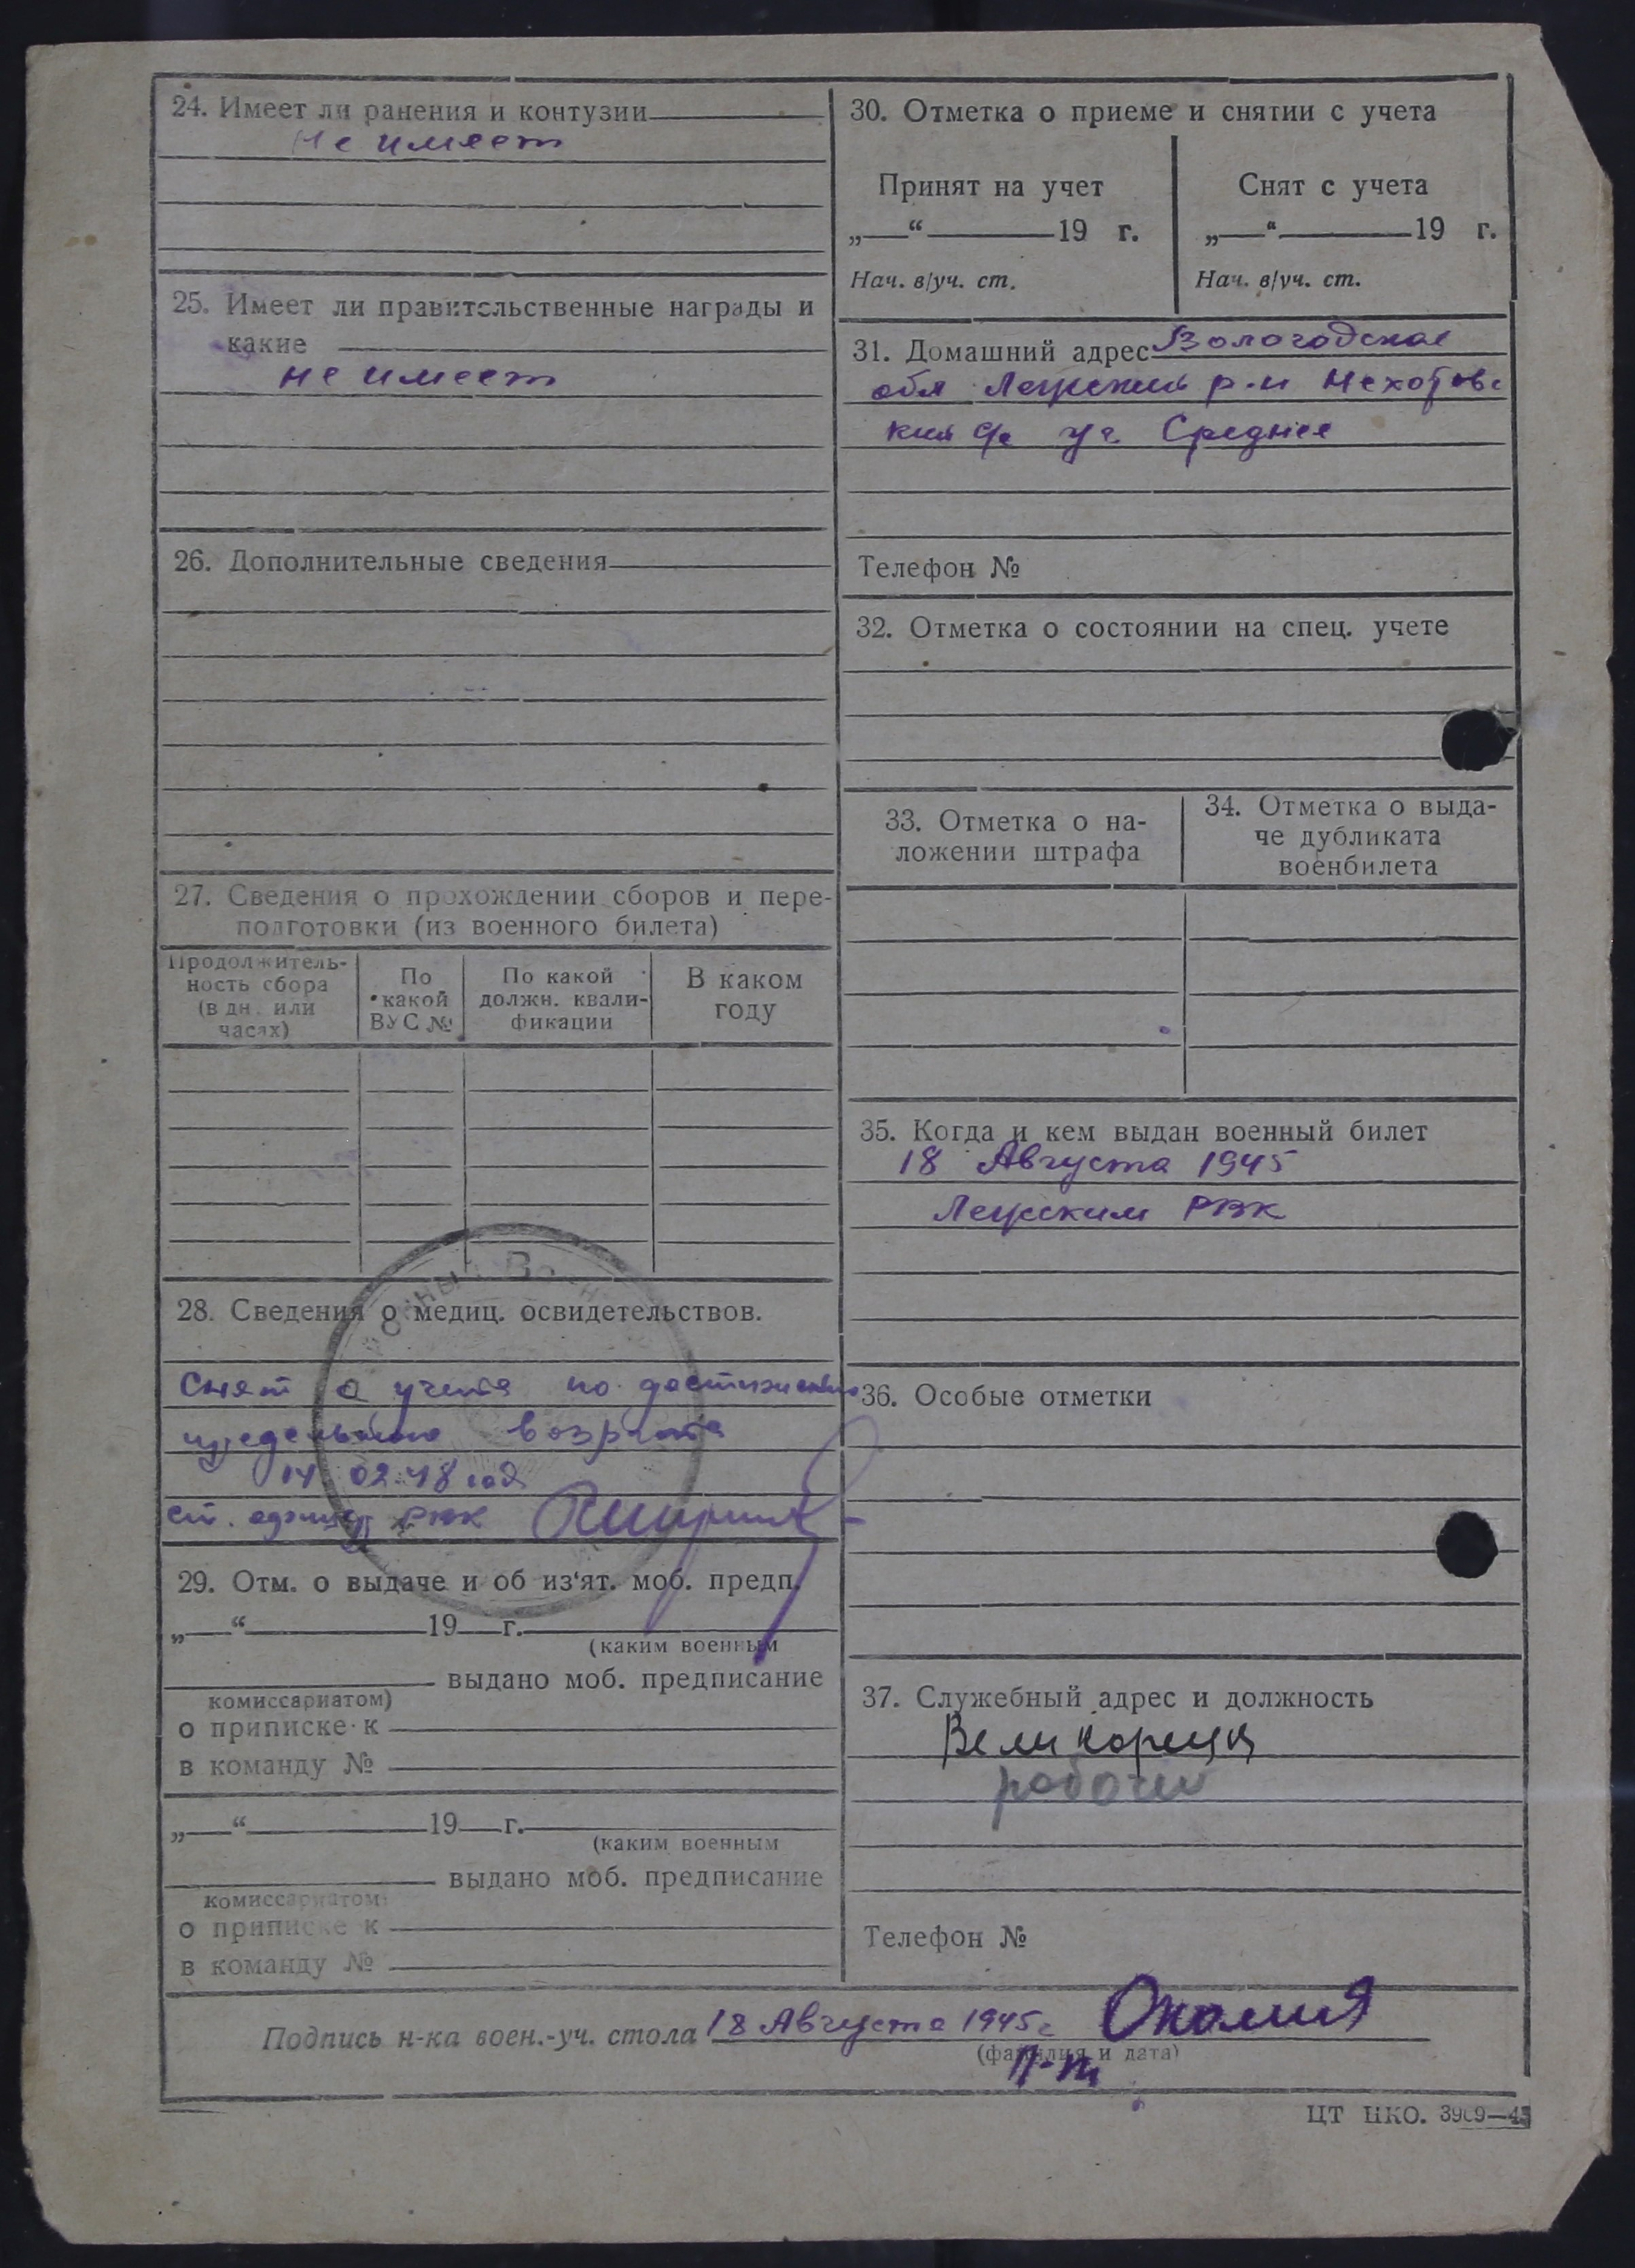 24. Имеет ли ранения и контузии
Не имеет
25. Имеет ли правительственные награды и
какие
не имеет
26. Дополнительные сведения
27. Сведения о прохождении сборов и пере-
подготовки (из военного билета)
Продолжитель-
ность сбора
(в дн. или
часах)
По
какой
ВУС №
По какой
должн. квали-
фикации
В каком
году
28. Сведения о медиц. освидетельствов.
Снят с учета по достижению
предельного возраста
14 02.48 год
ст. РВК
29. Отм. о выдаче и об из'ят. моб. предп.
„ “ 19 г.
(каким военным
выдано моб. предписание
комиссариатом)
о приписке к
в команду №
„ “ 19 г.
(каким военным
выдано моб. предписание
комиссариатом)
о приписке к
в команду №
30. Отметка о приеме и снятии с учета
Принят на учет
„ “ 19 г.
Нач. в/уч. ст.
Снят с учета
„ “ 19 г.
Нач. в/уч. ст.
31. Домашний адрес Вологодская
обл р-н
кий с/с Среднее
Телефон №
32. Отметка о состоянии на спец. учете
33. Отметка о на-
ложении штрафа
34. Отметка о выда-
че дубликата
военбилета
35. Когда и кем выдан военный билет
18 Августа 1945
РВК
36. Особые отметки
37. Служебный адрес и должность
рабочий
Телефон №
Подпись н-ка воен.-уч. стола 18 Августа 1945 г
(фамилия и дата)
ЦТ НКО. 3909—45